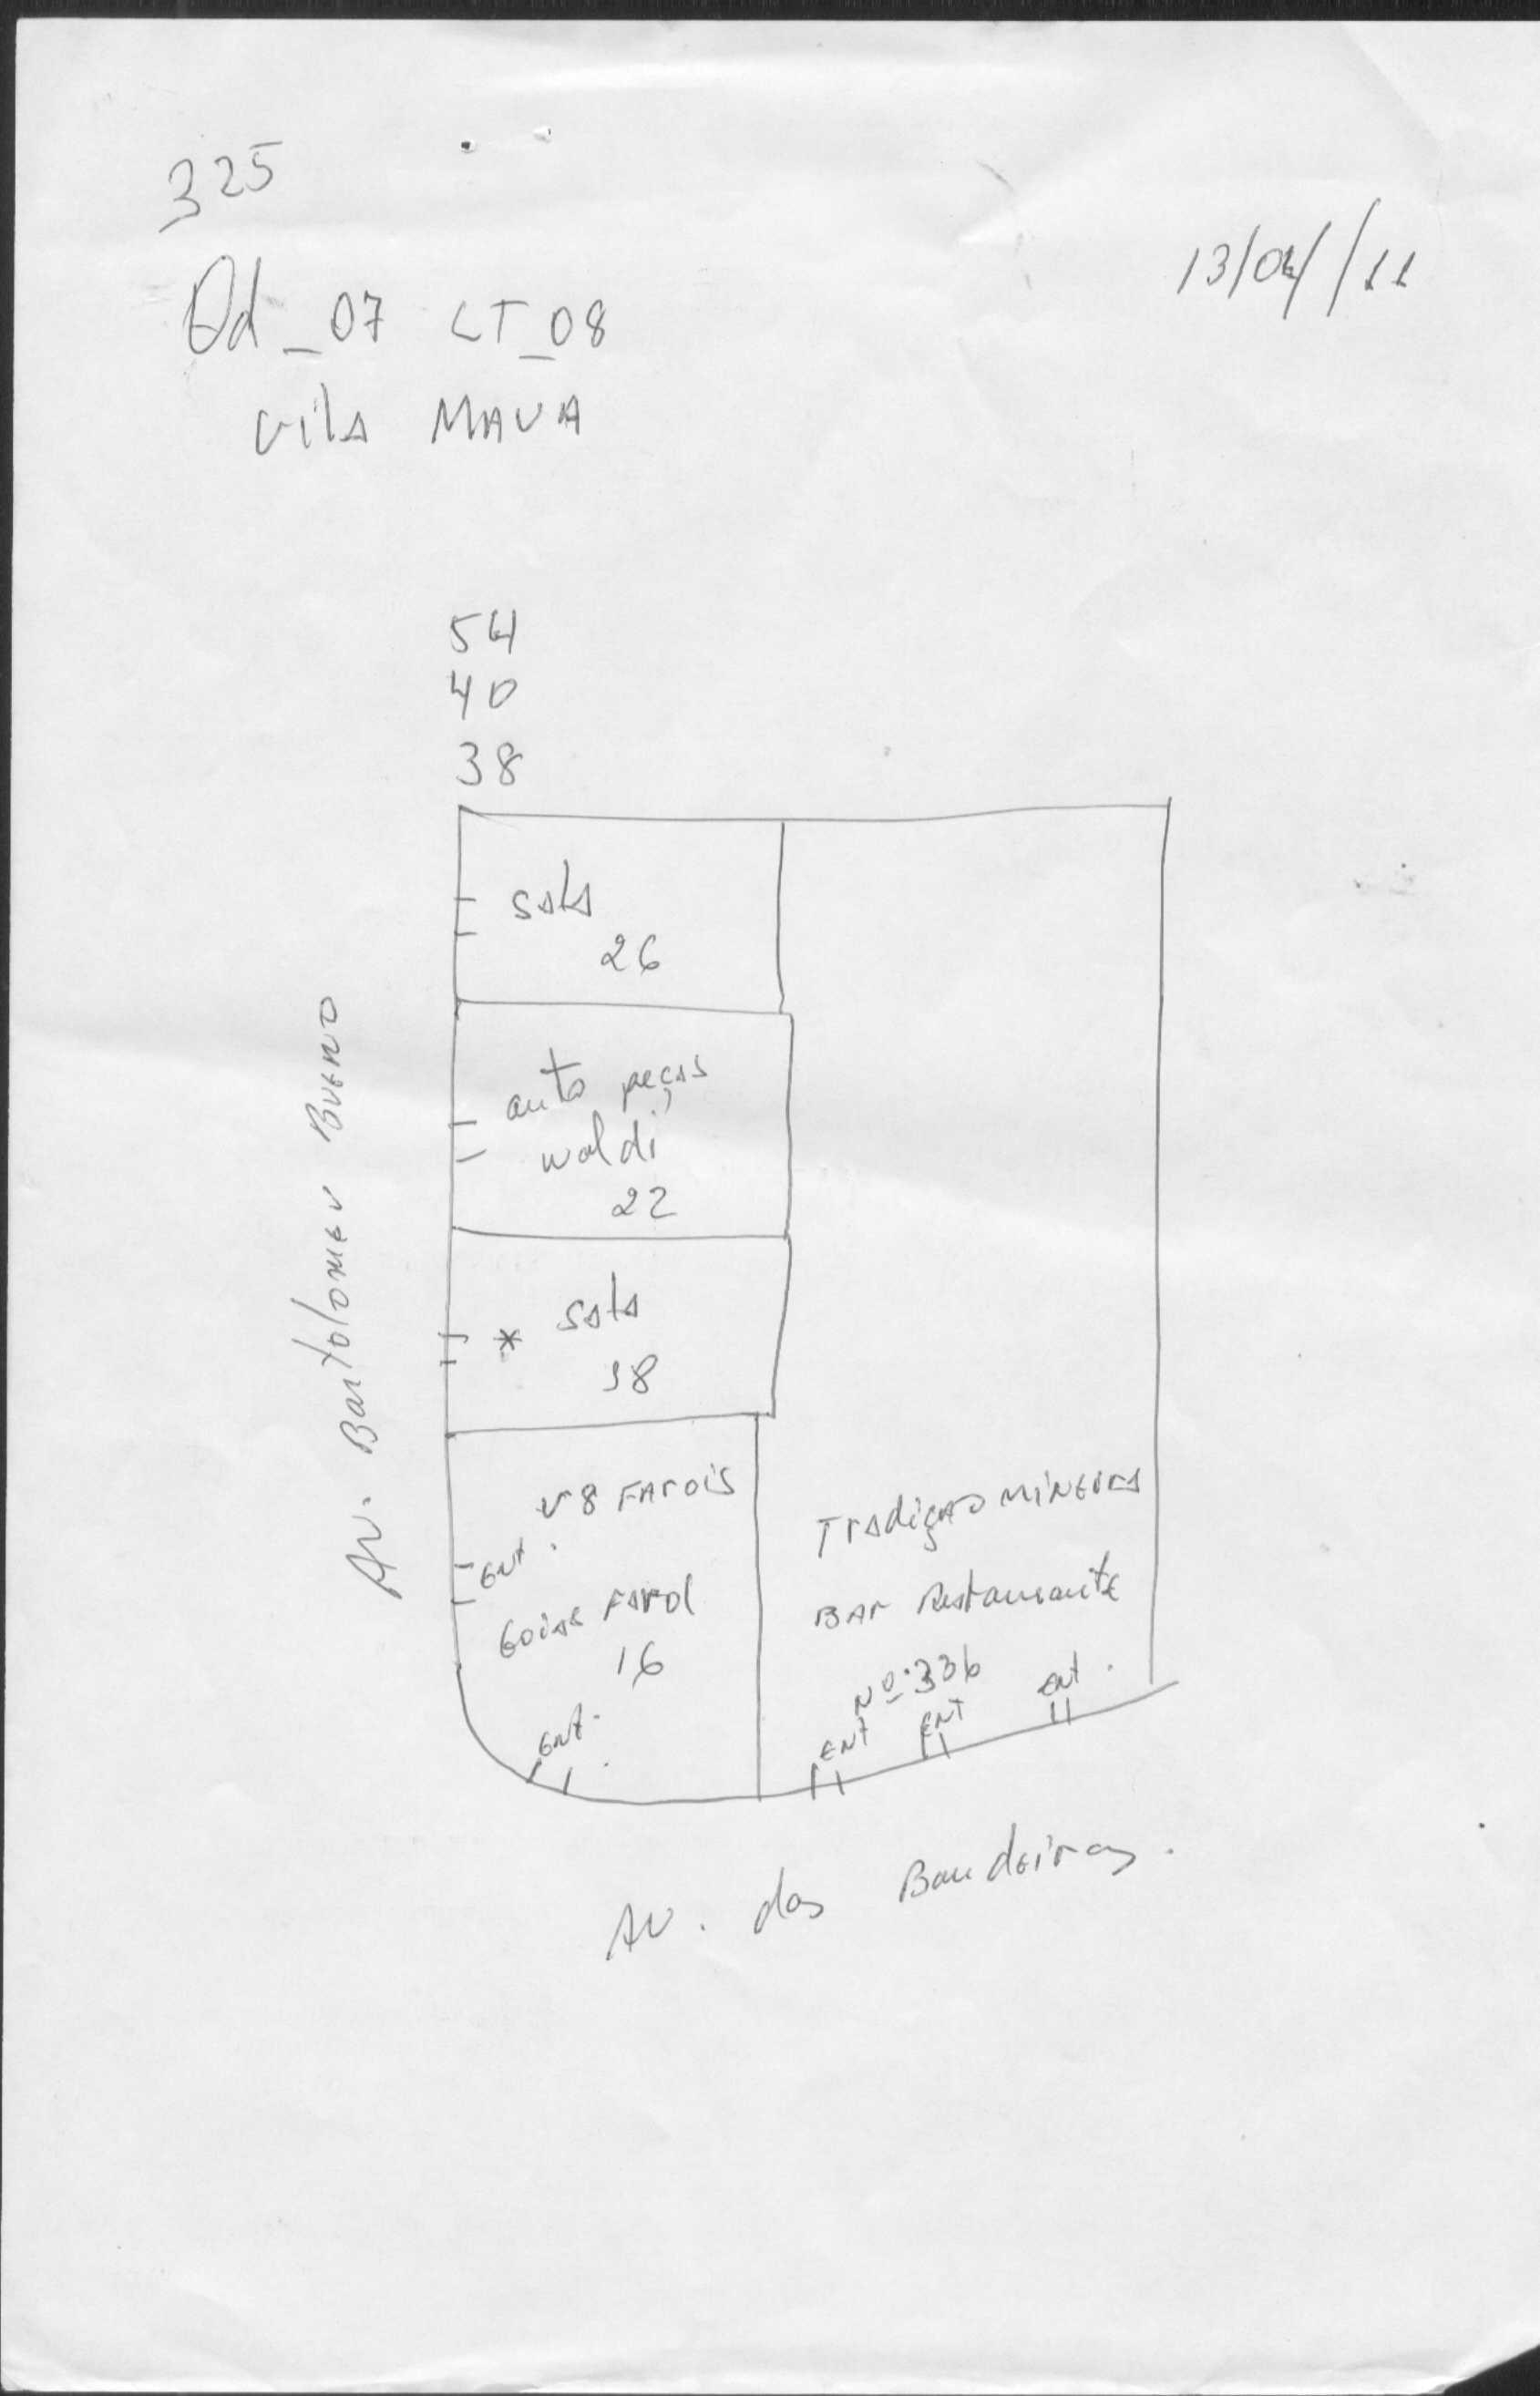 325
13/04/11
Qd_07 LT_08
vila MAUA
54
40
38
sala
26
auto peças
waldi
22
* sala
18
V8 FArois
Ent.
Goias Farol
16
Ent.
Tradição Mineira
BAr Restaurante
Nº 336
ENT
ENT
ENT.
Av. Bartolomeu Bueno
Av. das Bandeiras.